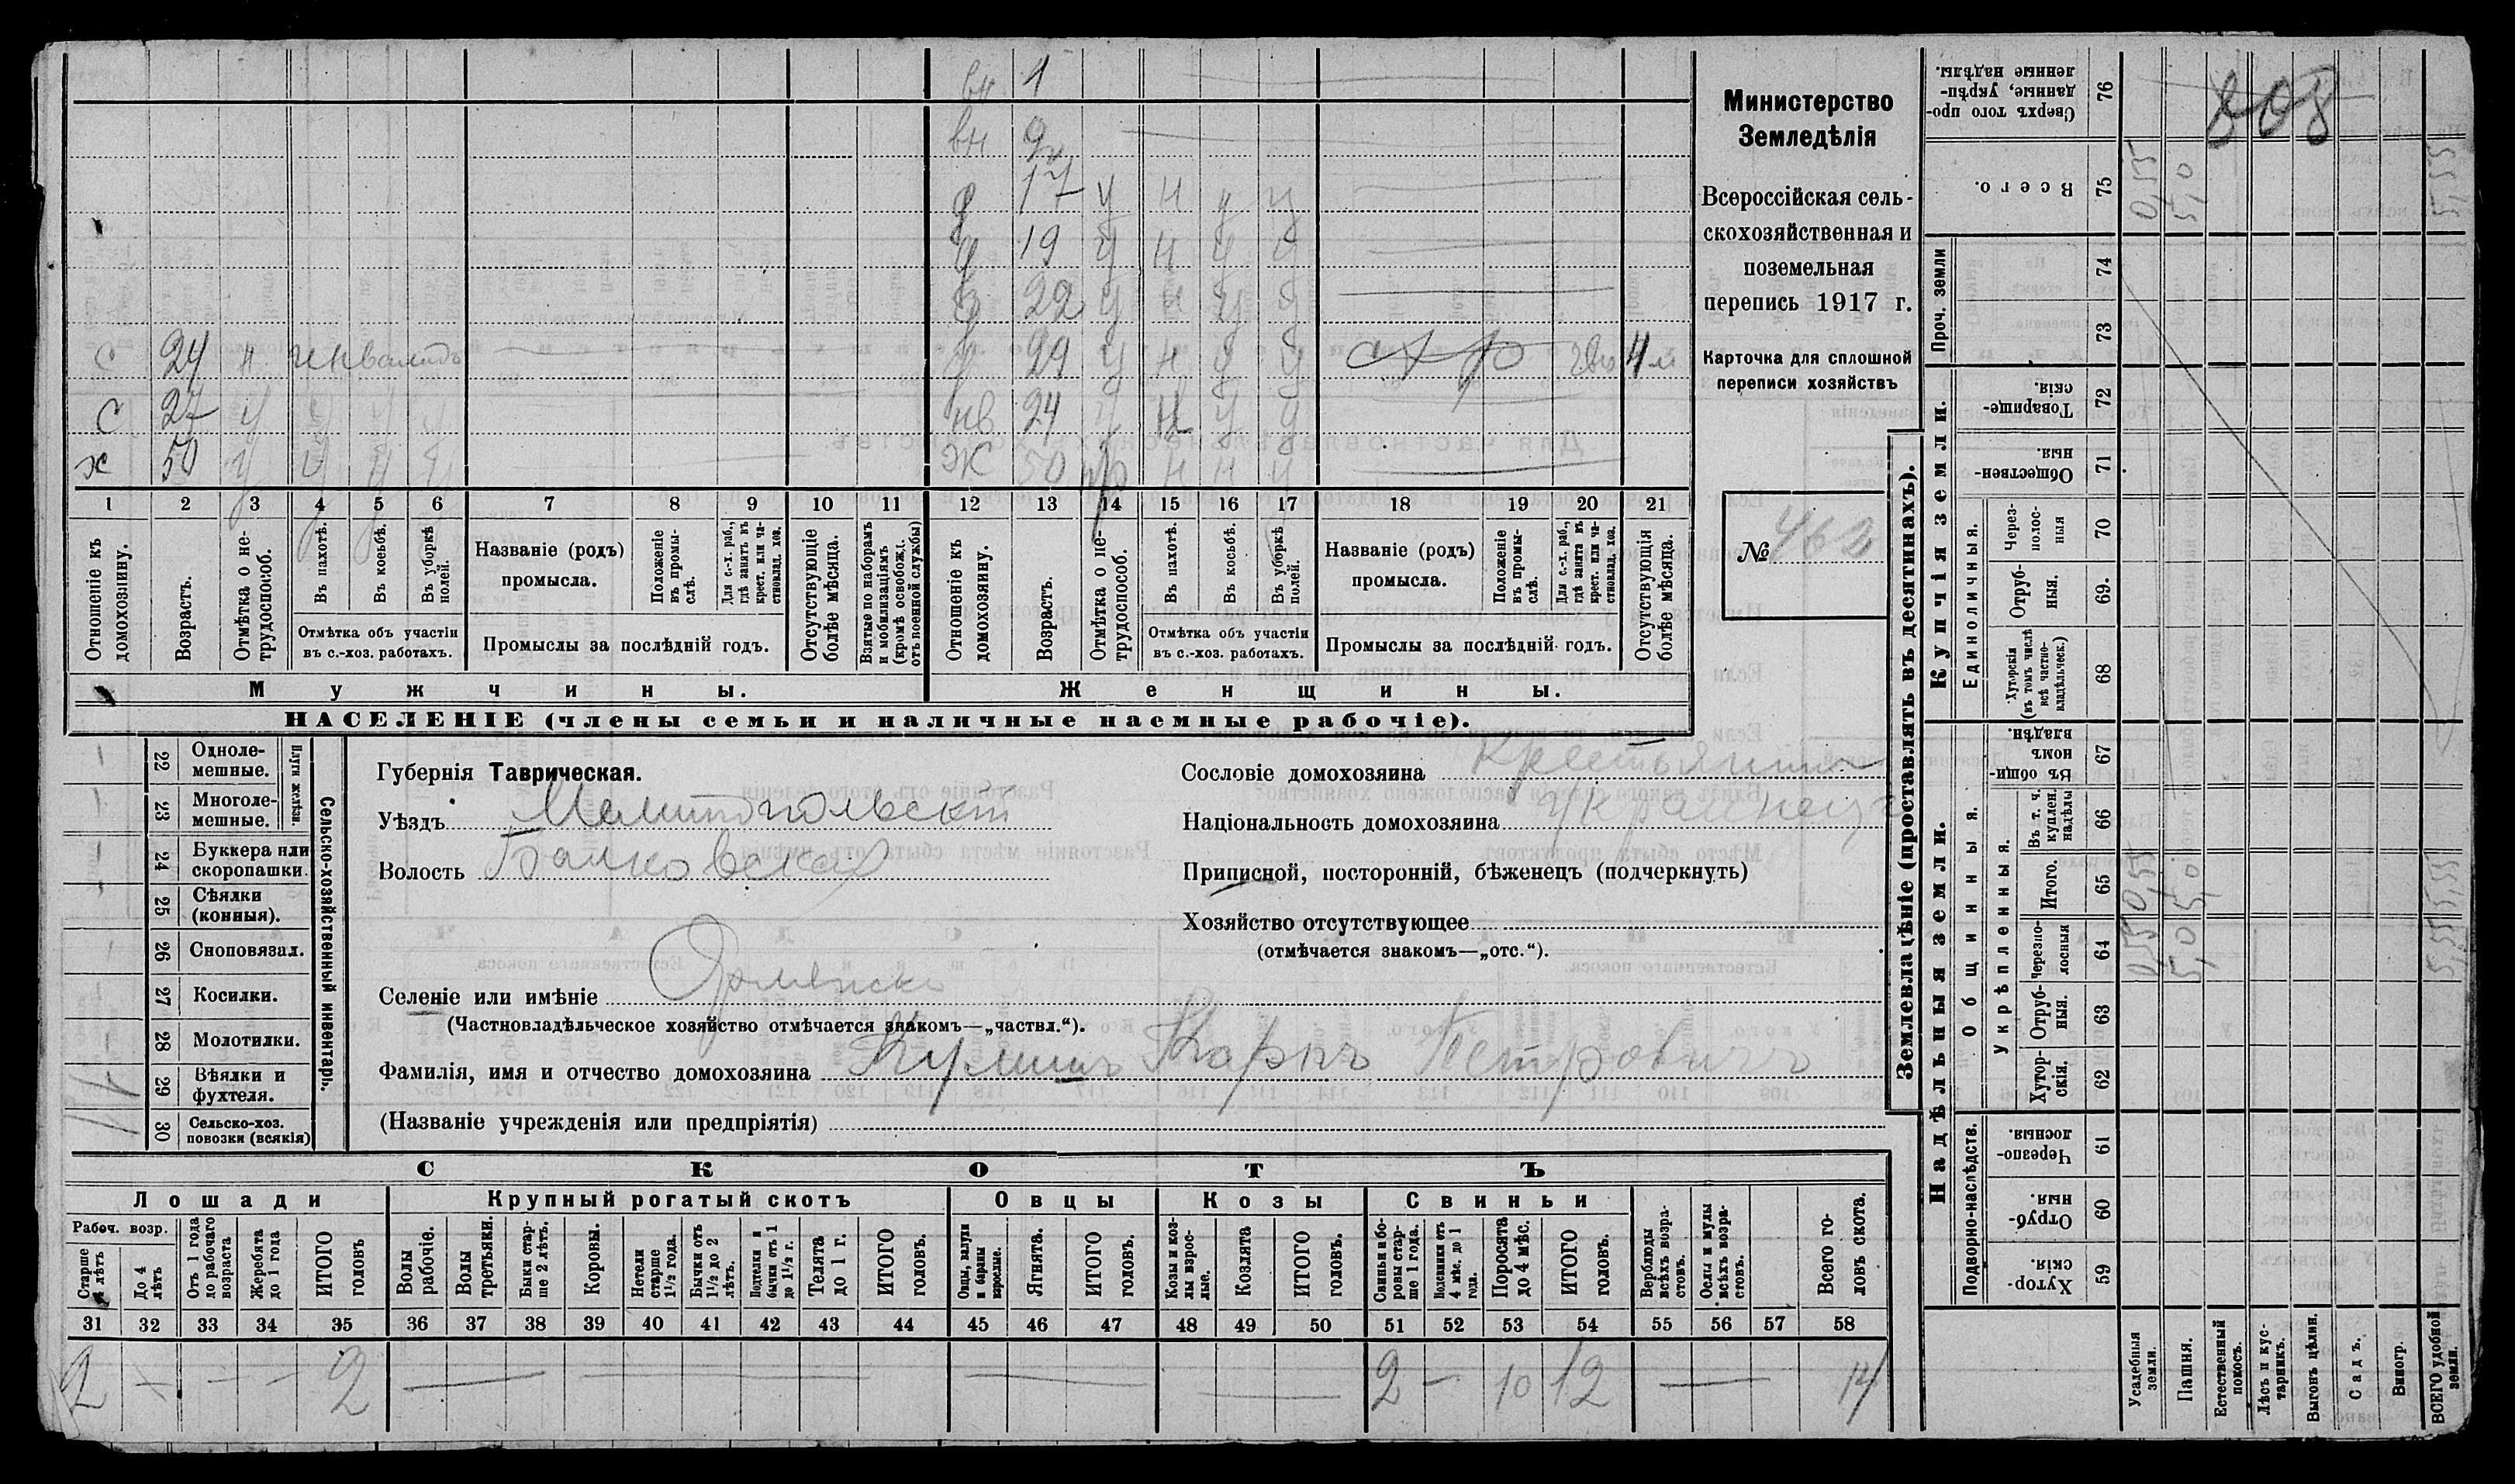 вн 1
вн 9
д 17 у н у у
д 19 у н у у
д 22 у н у у
с 24 н инвалидъ
д 29 у н у у
4 м
с 27 у у у у
нв 24 у н у у
х 50 у у у у
Ж 50 н н у
1 2 3 4 5 6 7 8 9 10 11 12 13 14 15 16 17 18 19 20 21
Отношеніе къ домохозяину.
Возрастъ.
Отмѣтка о нетрудоспособ.
Въ пахотѣ.
Въ косьбѣ.
Въ уборкѣ полей.
Отмѣтка объ участіи
въ с.-хоз. работахъ.
Названіе (родъ)
промысла.
Положеніе въ промыслѣ.
Для с.-х. раб., гдѣ занятъ въ крест. или частновлад. хоз.
Промыслы за послѣдній годъ.
Отсутствующіе болѣе мѣсяца.
Взятые по наборамъ и мобилизаціямъ (кромѣ освобожд. отъ военной службы)
Отношеніе къ домохозяину.
Возрастъ.
Отмѣтка о нетрудоспособ.
Въ пахотѣ.
Въ косьбѣ.
Въ уборкѣ полей.
Отмѣтка объ участіи
въ с.-хоз. работахъ.
Названіе (родъ)
промысла.
Положеніе въ промыслѣ.
Для с.-х. раб., гдѣ занята въ крест. или частновлад. хоз.
Промыслы за послѣдній годъ.
Отсутствующія болѣе мѣсяца.
Мужчины.
Женщины.
НАСЕЛЕНІЕ (члены семьи и наличные наемные рабочіе).
Министерство
Земледѣлія
Всероссійская сель-
скохозяйственная и
поземельная
перепись 1917 г.
Карточка для сплошной
переписи хозяйствъ
№ 462
22 Однолемешные.
23 Многолемешные.
Плуги желѣзн.
24 Буккера или скоропашки.
25 Сѣялки (конныя).
26 Сноповязал.
27 Косилки.
28 Молотилки.
29 Вѣялки и фухтеля.
30 Сельско-хоз. повозки (всякія)
Сельско-хозяйственный инвентарь.
Губернія Таврическая.
Уѣздъ Мелитопольскій
Волость Балковская
Селеніе или имѣніе
(Частновладѣльческое хозяйство отмѣчается знакомъ—„частвл.“).
Фамилія, имя и отчество домохозяина Карпъ Петровичъ
(Названіе учрежденія или предпріятія)
Сословіе домохозяина Крестьянинъ
Національность домохозяина украинецъ
Приписной, посторонній, бѣженецъ (подчеркнуть)
Хозяйство отсутствующее
(отмѣчается знакомъ—„отс.“).
СКОТЪ
Лошади
Крупный рогатый скотъ
Овцы
Козы
Свиньи
Рабоч. возр.
Старше 4 лѣтъ
До 4 лѣтъ
Отъ 1 года до рабочаго возраста
Жеребята до 1 года
ИТОГО головъ
Волы рабочіе.
Волы третьяки.
Быки старше 2 лѣтъ.
Коровы.
Нетели старше 1½ года.
Бычки отъ 1½ до 2 лѣтъ.
Подтелки и бычки отъ 1 до 1½ г.
Телята до 1 г.
ИТОГО головъ.
Овцы, валухи и бараны взрослые.
Ягнята.
ИТОГО головъ.
Козы и козлы взрослые.
Козлята
ИТОГО головъ.
Свиньи и боровы старше 1 года.
Подсвинки отъ 4 мѣс. до 1 года.
Поросята до 4 мѣс.
ИТОГО головъ.
Верблюды всѣхъ возрастовъ.
Ослы и мулы всѣхъ возрастовъ.
Всего головъ скота.
31 32 33 34 35 36 37 38 39 40 41 42 43 44 45 46 47 48 49 50 51 52 53 54 55 56 57 58
2 2 2 10 12 14
Землевладѣніе (проставлять въ десятинахъ).
808
Сверхъ того проданные, укрѣпленные надѣлы. 76
Всего. 75 0,55 5,0 5,55
Проч. земли
74
73
Купчія земли.
Товарищескія. 72
Общественныя. 71
Единоличныя.
Черезполосныя 70
Отрубныя. 69.
Хуторскія (въ томъ числѣ всѣ частновладѣльческ.) 68
Надѣльныя земли.
Общинныя.
Въ общинномъ владѣн. 67
Укрѣпленныя.
Въ т. ч. куплен. надѣлы 66
Итого. 65 0,55 5,0 5,55
Черезполосныя 64 0,55 5,0 5,55
Отрубныя. 63
Хуторскія. 62
Подворно-наслѣдств.
Черезполосныя. 61
Отрубныя. 60
Хуторскія 59
Усадебныя земли.
Пашня.
Естественный покосъ.
Лѣсъ и кустарникъ.
Выгонъ цѣлин.
Садъ.
Виногр.
ВСЕГО удобной земли.